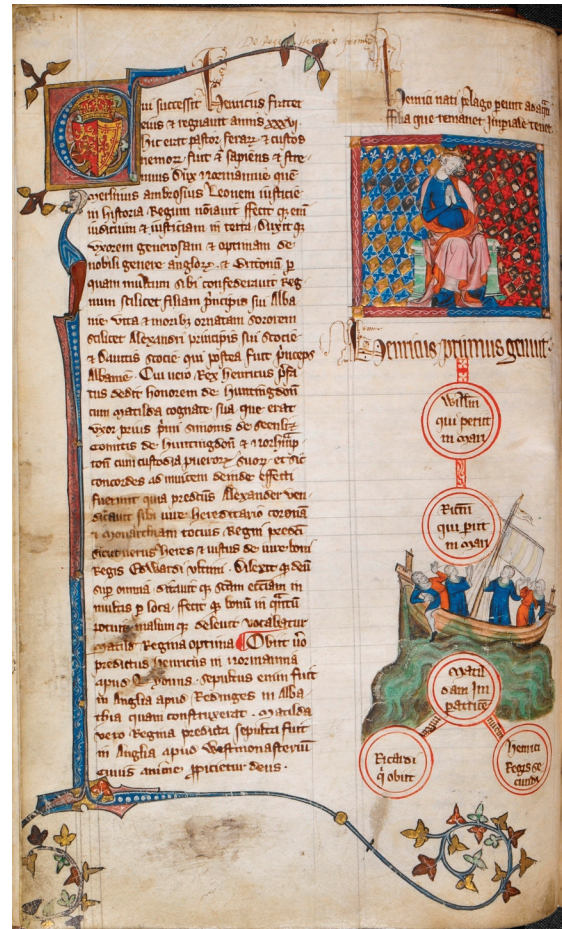 De rege Henrico primo
Cui successit Henricus frater
eius & regnavit annis xxxvi
hic erit pastor ferarum & custos
nemorum fuit & sapiens & stre
nuus Dux Normannie quem
merlinus ambrosius Leonem iusticie
in historia Regum noiauit ffecit q. eni
iudicium & iusticiam in terra Duxit q.
vxorem generosam & optimam de
nobili genere anglorum & Britonum p
quam multum sibi confederauit Reg
num scilicet filiam principis sui Alba
nie vita & moribz ornatam sororem
scilicet Alexandri principis sui Scocie
& Dauitis Scocie qui postea fuit princeps
Albanie. Cui vero Rex Henricus
tus dedit honorem de Huntingdon
cum matilda cognata sua que erat
vxor prius simonis de
comitis de huntingdon & norhamp
ton cum custodia puerorum suorum et sic
concordes ad inuicem deinde effecti
fuerunt quia predictus Alexander ven
dicauit sibi iure hereditario coronam
& monarchiam tocius Regni
sicut verus heres & iustus de iure boni
Regis Edwardi vltimi. Dilexit q. deum
sup omnia ditauit q. scam ecciam in
multis p loca. fecit q. bonum in
malum q. deleuit vocabatur
matild Regina optima Obiit vero
predictus henricus in normannia
apud sepultus enim fuit
in Anglia apud Redinges in Abba
thia quam construxerat. Matilda
vero Regina predicta sepulta fuit
in Anglia apud westmonasterium
cuius anime ppicietur deus.
Henrici nati pelago perunt
filia que remanet Imperiale tenet
Henricus primus genuit
Willm
qui periit
in mari
Ricm
qui piit
in mari
Matil
dam Im
patrice
Ricardi
q obiit
Henrici
Regis se
cundi